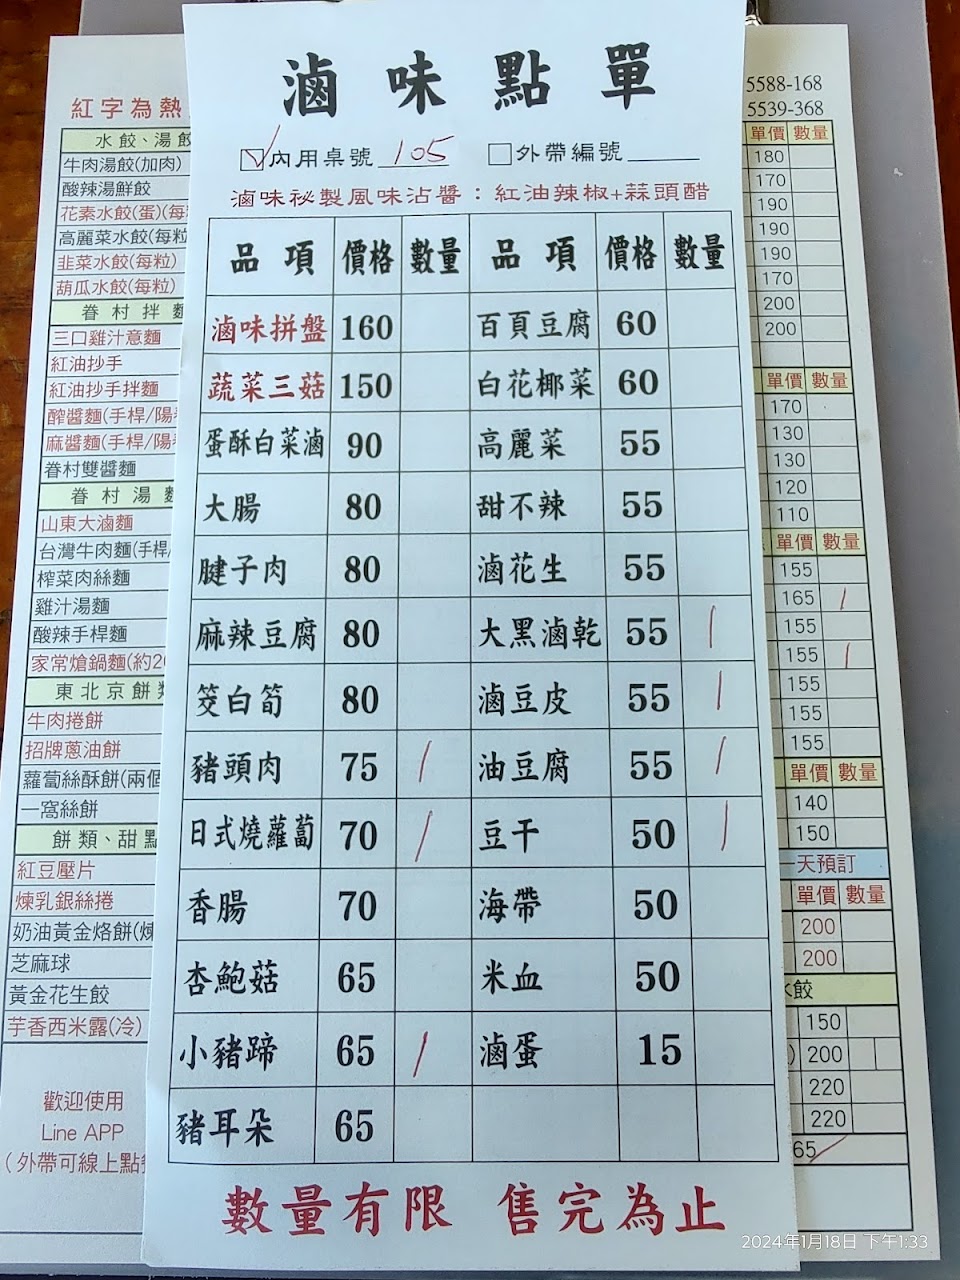 滷味點單
內用桌號 105 外帶編號
滷味祕製風味沾醬：紅油辣椒+蒜頭醋
品項 價格 數量 品項 價格 數量
滷味拼盤 160 百頁豆腐 60
蔬菜三菇 150 白花椰菜 60
蛋酥白菜滷 90 高麗菜 55
大腸 80 甜不辣 55
腱子肉 80 滷花生 55
麻辣豆腐 80 大黑滷乾 55
筊白筍 80 滷豆皮 55
豬頭肉 75 油豆腐 55
日式燒蘿蔔 70 豆干 50
香腸 70 海帶 50
杏鮑菇 65 米血 50
小豬蹄 65 滷蛋 15
豬耳朵 65
數量有限 售完為止
紅字為熱
水餃、湯餃
牛肉湯餃(加肉)
酸辣湯鮮餃
花素水餃(蛋)(每
高麗菜水餃(每粒
韭菜水餃(每粒)
葫瓜水餃(每粒)
眷村拌麵
三口雞汁意麵
紅油抄手
紅油抄手拌麵
醡醬麵(手桿/陽
麻醬麵(手桿/陽
眷村雙醬麵
眷村湯麵
山東大滷麵
台灣牛肉麵(手桿
榨菜肉絲麵
雞汁湯麵
酸辣手桿麵
家常熗鍋麵(約2
東北京餅類
牛肉捲餅
招牌蔥油餅
蘿蔔絲酥餅(兩個
一窩絲餅
餅類、甜點
紅豆壓片
煉乳銀絲捲
奶油黃金烙餅(煉
芝麻球
黃金花生餃
芋香西米露(冷)
歡迎使用
Line APP
(外帶可線上點
5588-168
5539-368
單價 數量
180
170
190
190
190
170
200
200
單價 數量
170
130
130
120
110
單價 數量
155
165
155
155
155
155
155
單價 數量
140
150
天預訂
單價 數量
200
200
水餃
150
200
220
220
65
2024年1月18日 下午1:33